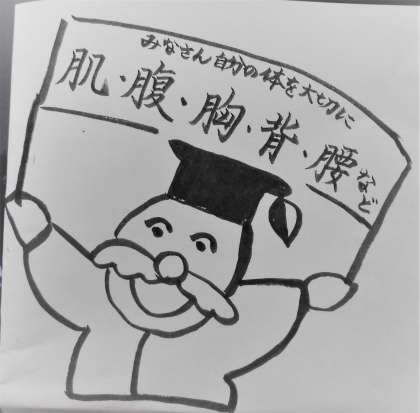 みなさん自分の体を大切に
肌・腹・胸・背・腰など